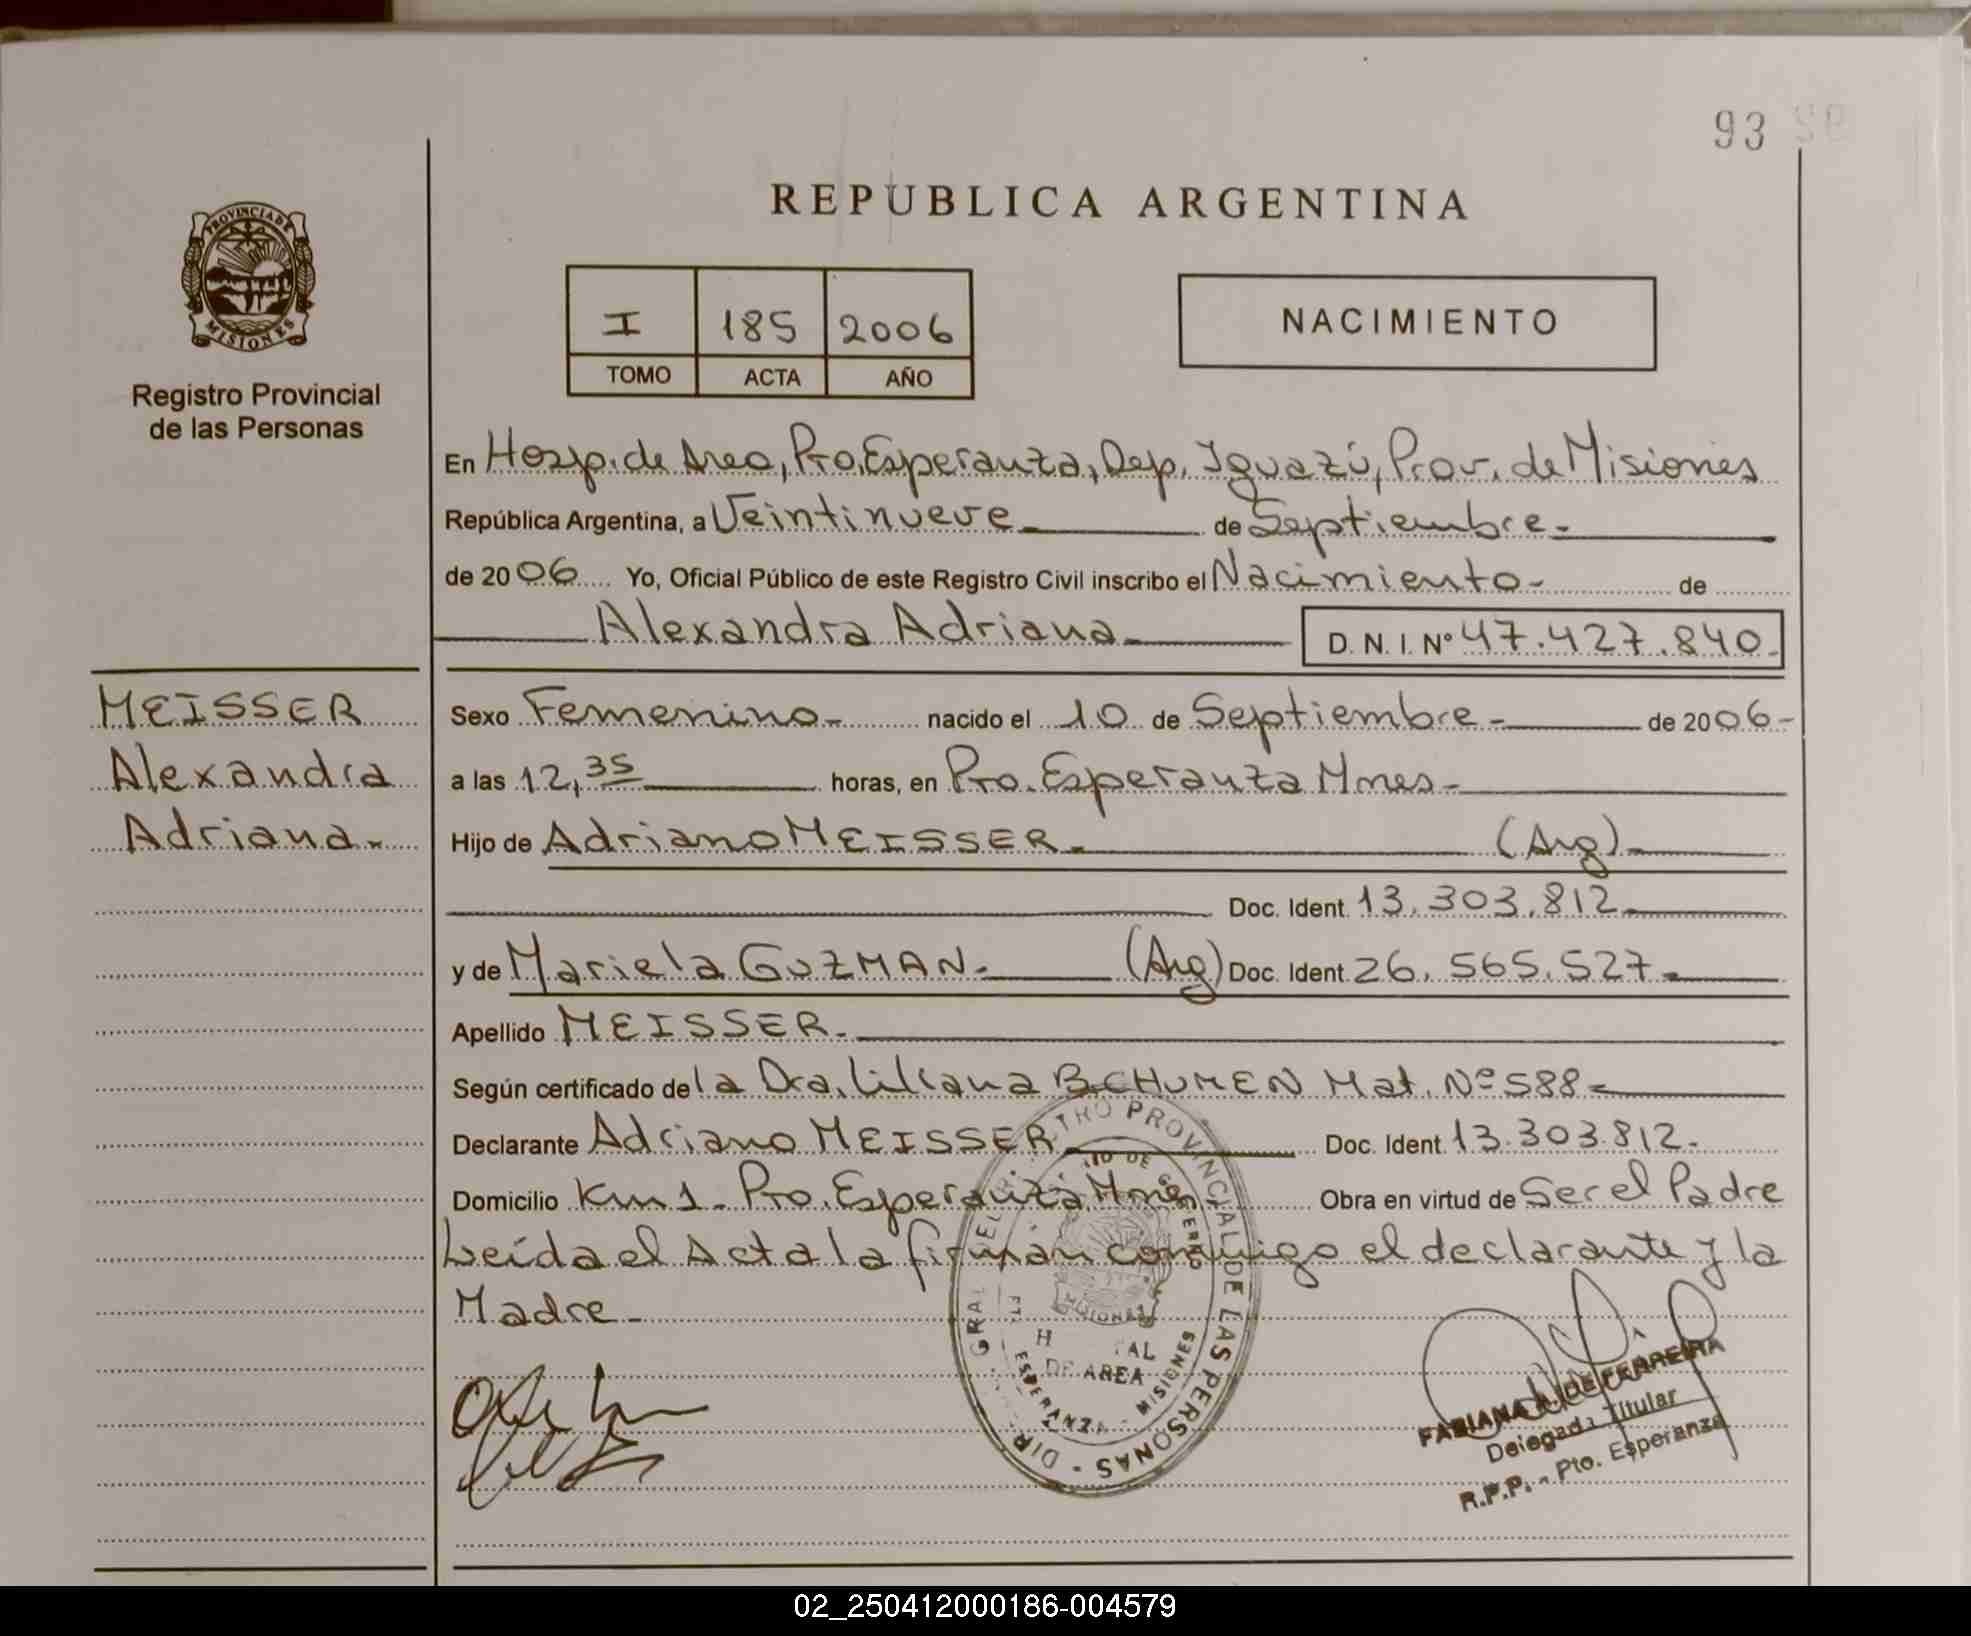 93
REPUBLICA ARGENTINA
PROVINCIA DE
MISIONES
Registro Provincial
de las Personas
I 185 2006
TOMO ACTA AÑO
NACIMIENTO
En Hosp. de Area, Pto. Esperanza, Dep. Iguazú, Prov. de Misiones
República Argentina, a Veintinueve de Septiembre.
de 2006 Yo, Oficial Público de este Registro Civil inscribo el Nacimiento - de
Alexandra Adriana
D. N. I. Nº 47.427.840.
MEISSER
Alexandra
Adriana.
Sexo Femenino nacido el 10 de Septiembre - de 2006-
a las 12,35 horas, en Pto. Esperanza Mnes -
Hijo de Adriano MEISSER. (Arg)
Doc. Ident. 13.303.812
y de Mariela GUZMAN. (Arg) Doc. Ident. 26.565.527
Apellido MEISSER.
Según certificado de la Dra. Liliana SCHUMEN Mat. Nº 588
Declarante Adriano MEISSER Doc. Ident. 13.303.812.
Domicilio Km 1 - Pto. Esperanza Mnes Obra en virtud de Ser el Padre
Leída el Acta la firman conmigo el declarante y la
Madre -
DIR. GRAL. DEL REGISTRO PROVINCIAL DE LAS PERSONAS
DE GOBIERNO
MISIONES
DE AREA
ESPERANZA - MISIONES
FABIANA DE FERREIRA
Delegada Titular
R.P.P. - Pto. Esperanza
02_250412000186-004579